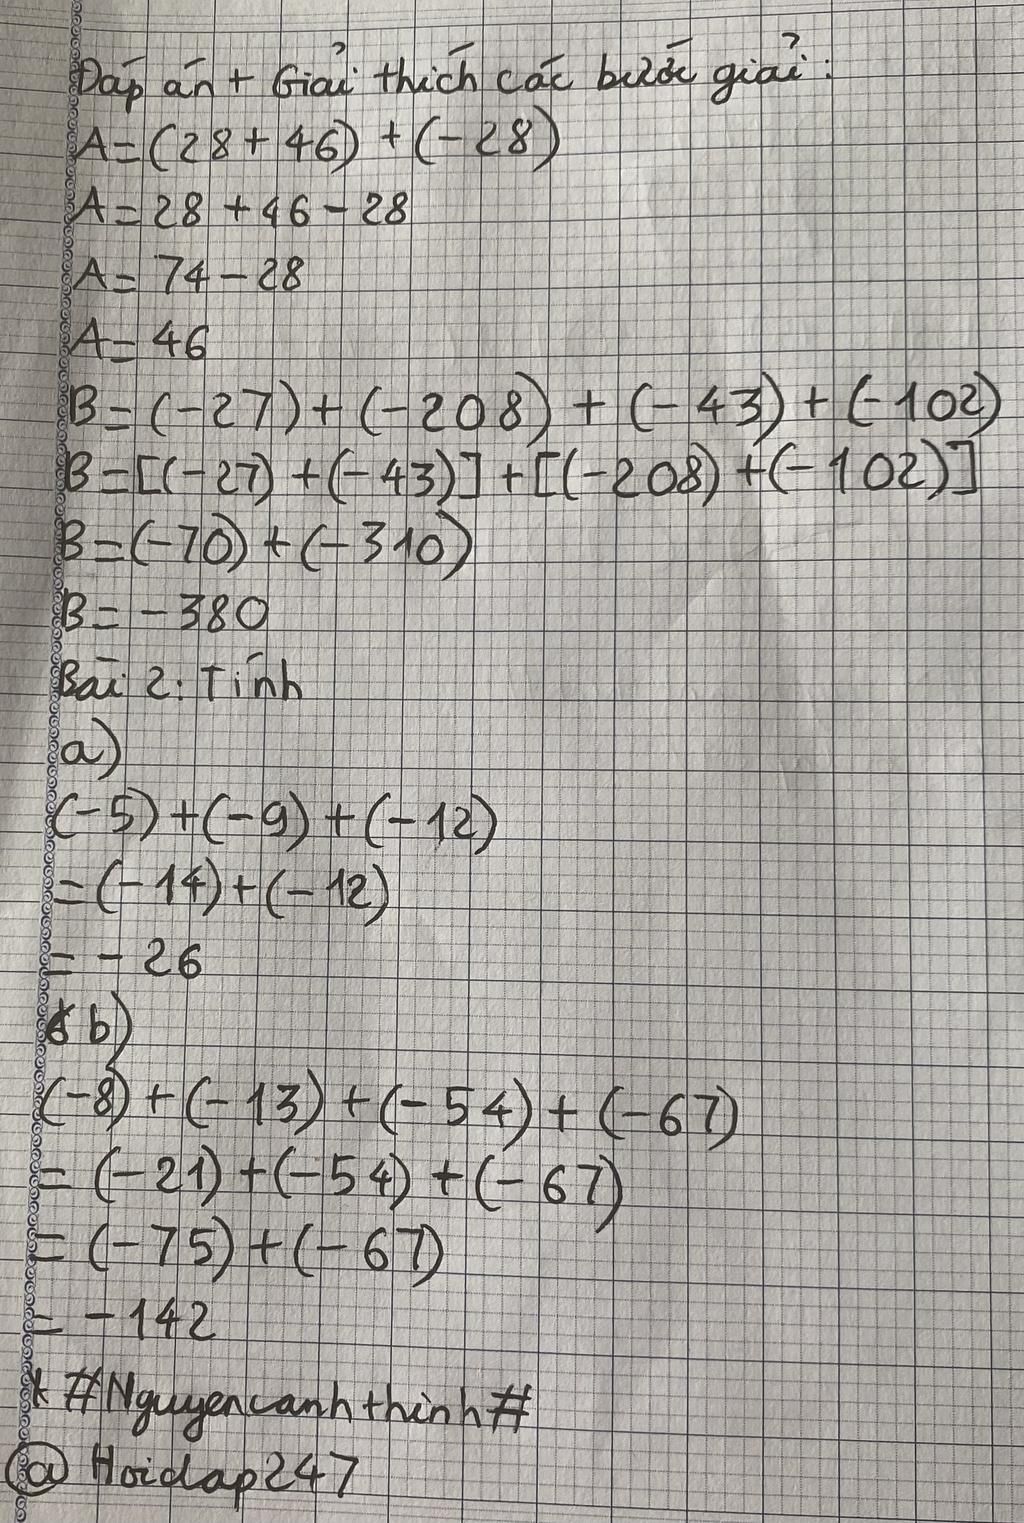 Đáp án + Giải thích các bước giải:
A = (28 + 46) + (-28)
A = 28 + 46 - 28
A = 74 - 28
A = 46
B = (-27) + (-208) + (-43) + (-102)
B = [(-27) + (-43)] + [(-208) + (-102)]
B = (-70) + (-310)
B = -380
Bài 2: Tính
a)
(-5) + (-9) + (-12)
= (-14) + (-12)
= - 26
b)
(-8) + (-13) + (-54) + (-67)
= (-21) + (-54) + (-67)
= (-75) + (-67)
= -142
* #Nguyencanhthinh#
@ Hoidap247